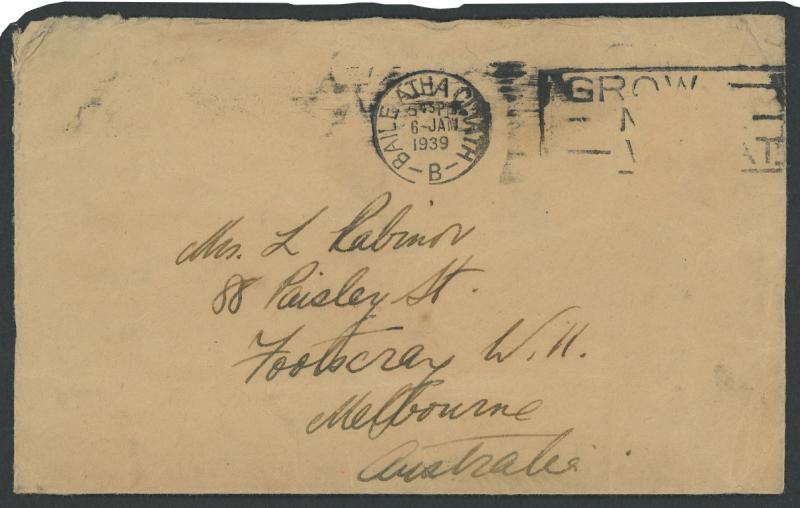 BAILE ATHA CLIATH
545PM
6-JAN
1939
-B-
GROW
Mrs. L Rabinov
88 Paisley St.
Footscray W.11.
Melbourne
Australia.